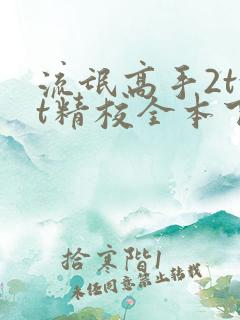 流氓高手2t
t精校全本下
拾寒階1
未经同意禁止转载